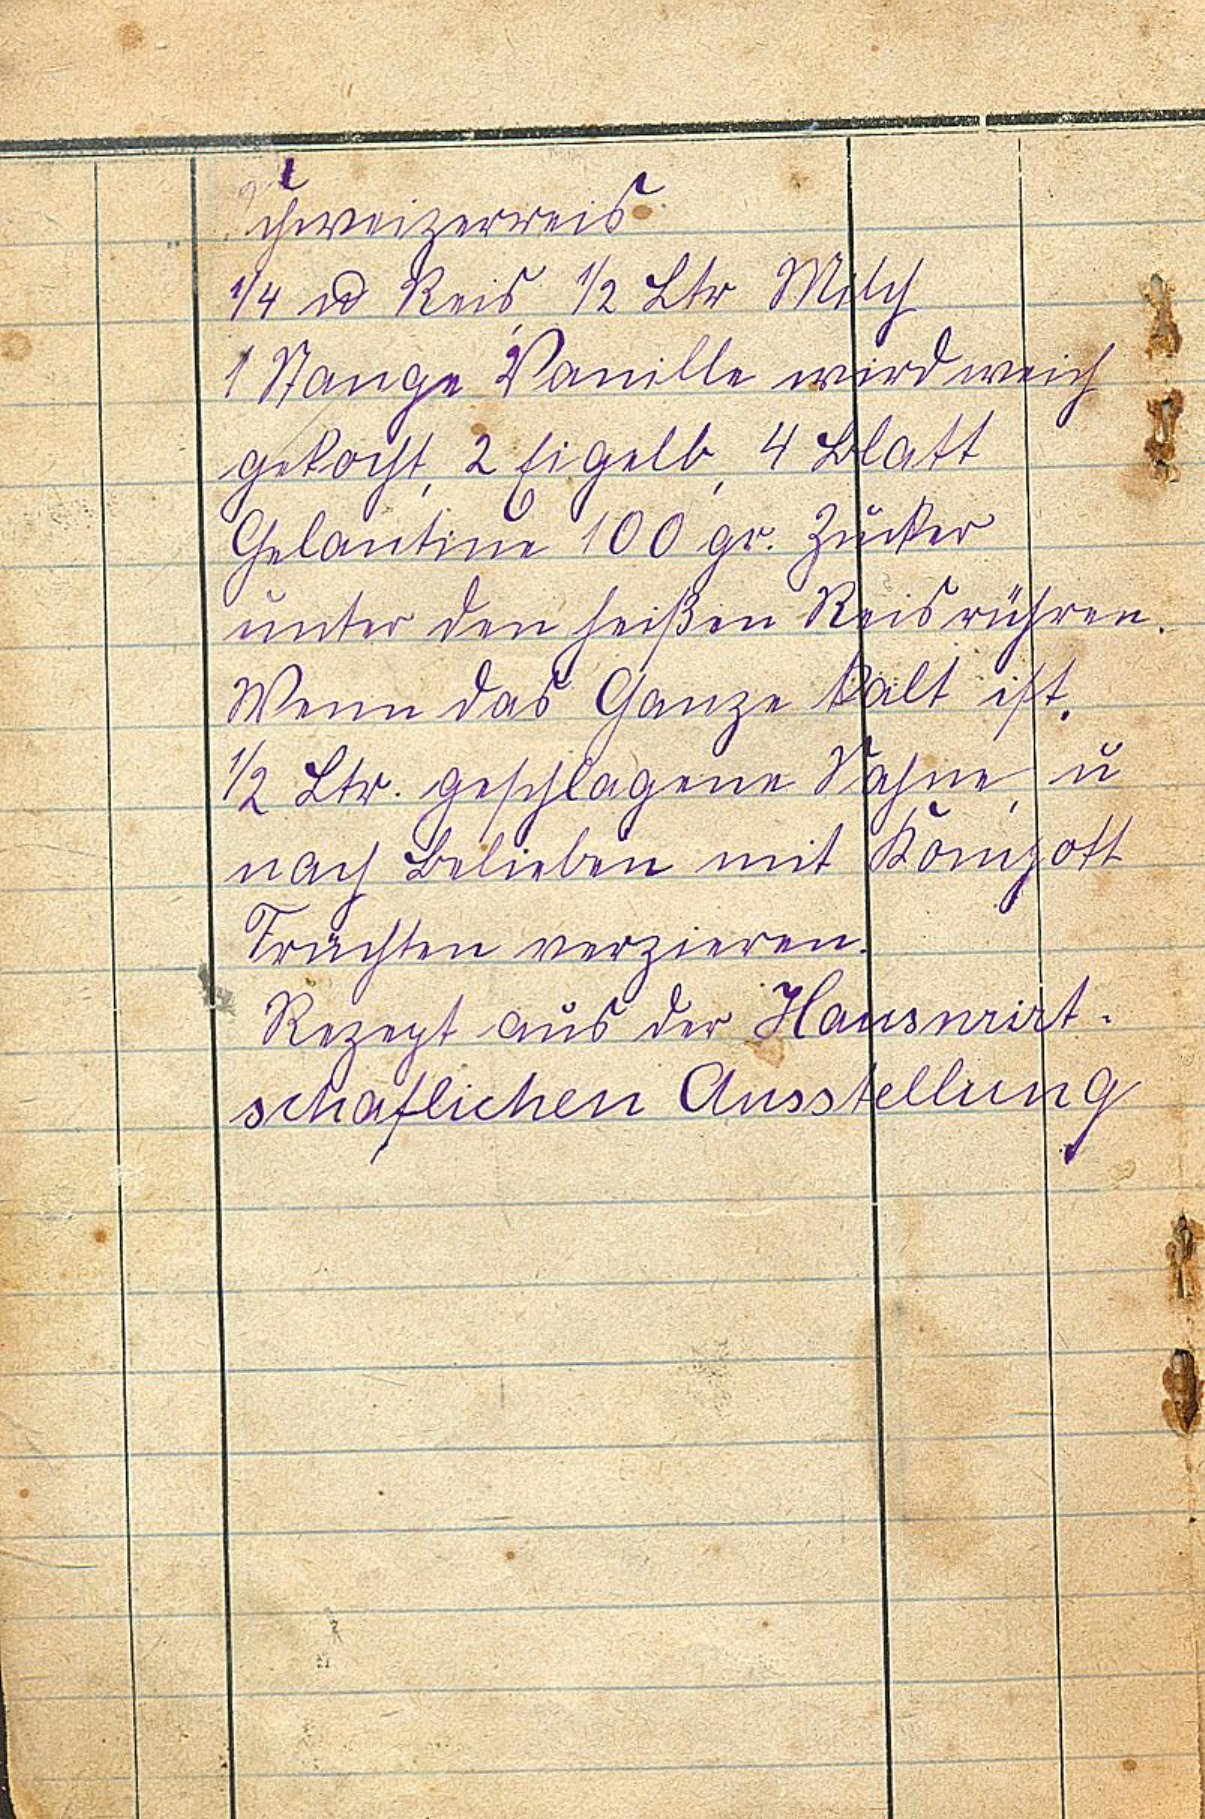 Schweizerreis
1/4 ℔ Reis, 1/2 Ltr Milch
1 Stange Vanille wird weich
gekocht, 2 Eigelb, 4 Blatt
Gelantine 100 gr. Zucker
unter den heißen Reis rühren.
Wenn das Ganze kalt ist,
1/2 Ltr. geschlagene Sahne, u
nach Belieben mit Kompott
Früchten verzieren.
Rezept aus der Hauswirt-
schaflichen Ausstellung